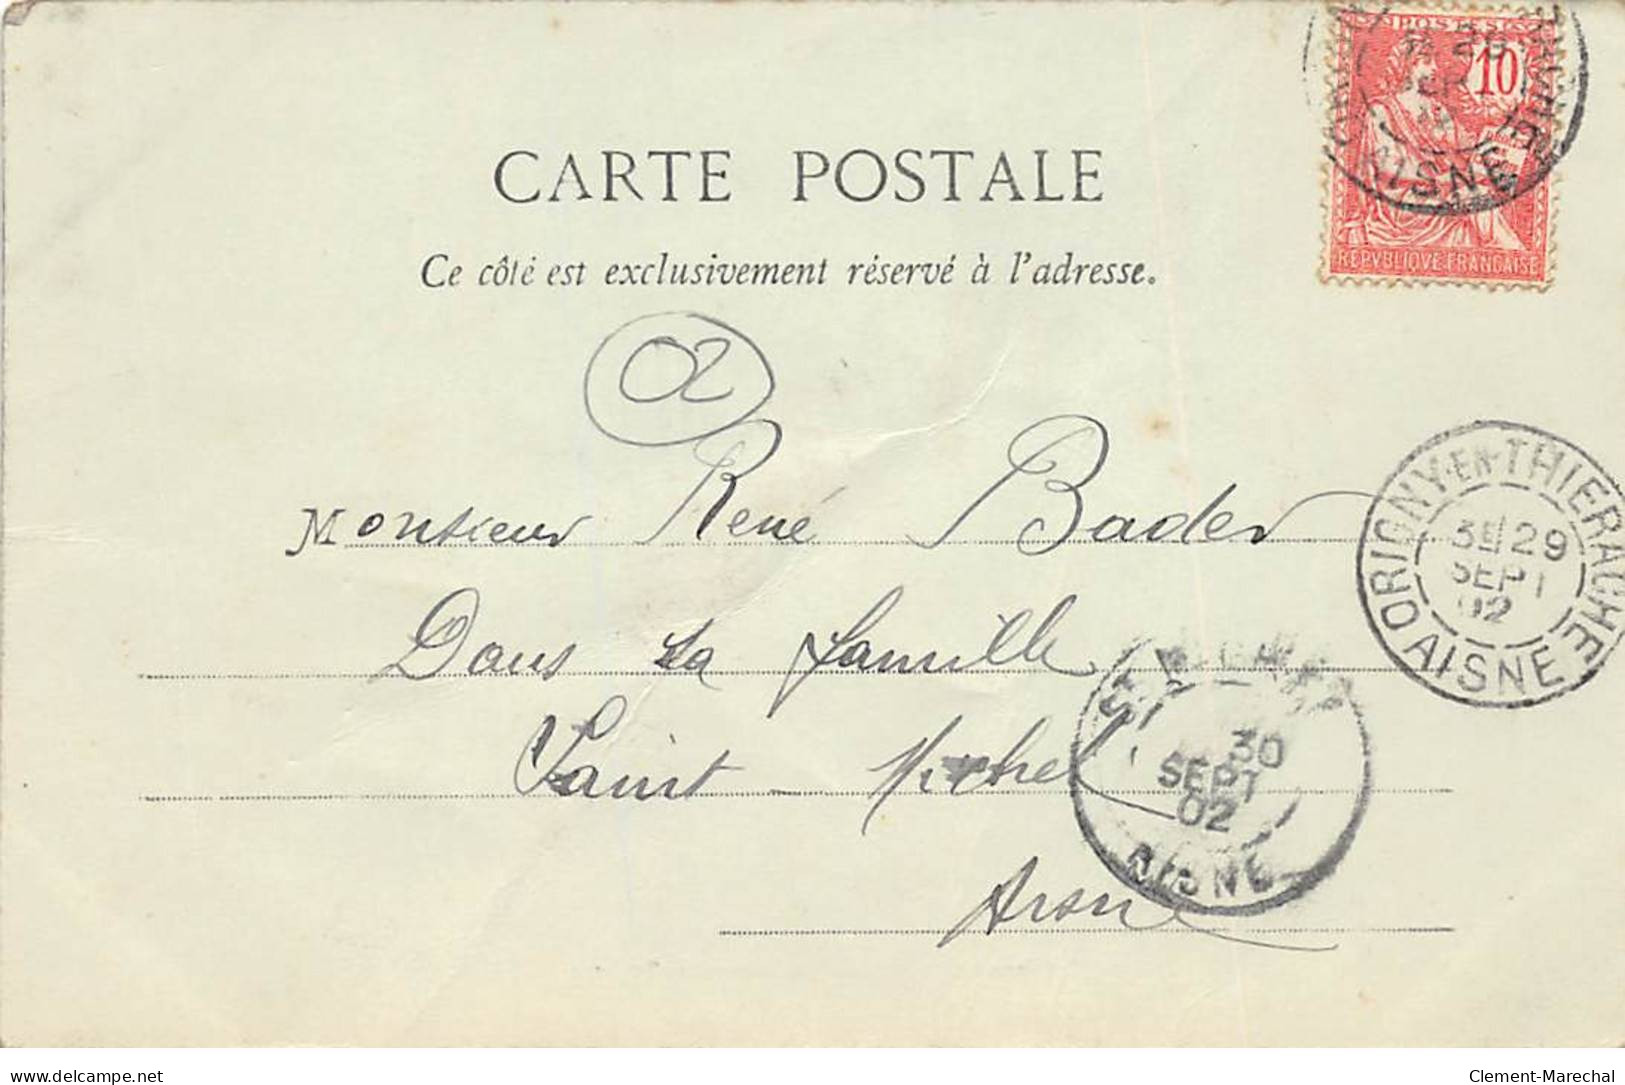 POSTES
10
29
AISNE
REPVBLIQVE FRANÇAISE
CARTE POSTALE
Ce côté est exclusivement réservé à l'adresse.
02
Monsieur René Bader
ORIGNY-EN-THIERACHE
3E 29
SEPT
02
AISNE
Dans sa famille
Saint-Michel
30
SEPT
02
AISNE
Aisne
www.delcampe.net
Clement-Marechal